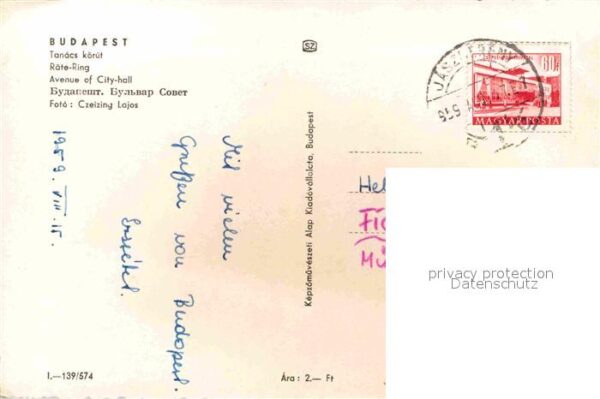 BUDAPEST
Tanács körút
Räte-Ring
Avenue of City-hall
Будапешт. Бульвар Совет
Fotó : Czeizing Lajos
SZ
1959. VIII. 15.
Mit vielen
Grüßen von Budapest.
Erzsébet.
I.—139/574
Ára : 2.— Ft
Képzőművészeti Alap Kiadóvállalata, Budapest
60f
MAGYAR POSTA
Hel
Fi
Mü
privacy protection
Datenschutz